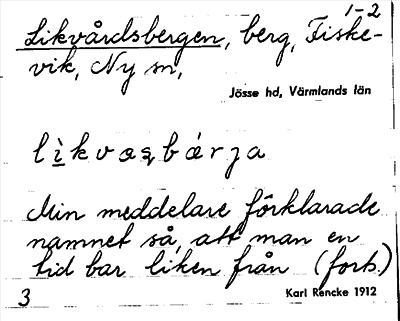 1-2
Likvårdsbergen, berg, Fiske-
vik, Ny sn,
Jösse hd, Värmlands län
lìkvaʂbárja
Min meddelare förklarade
namnet så, att man en
tid bar liken från (forts.)
3
Karl Rencke 1912